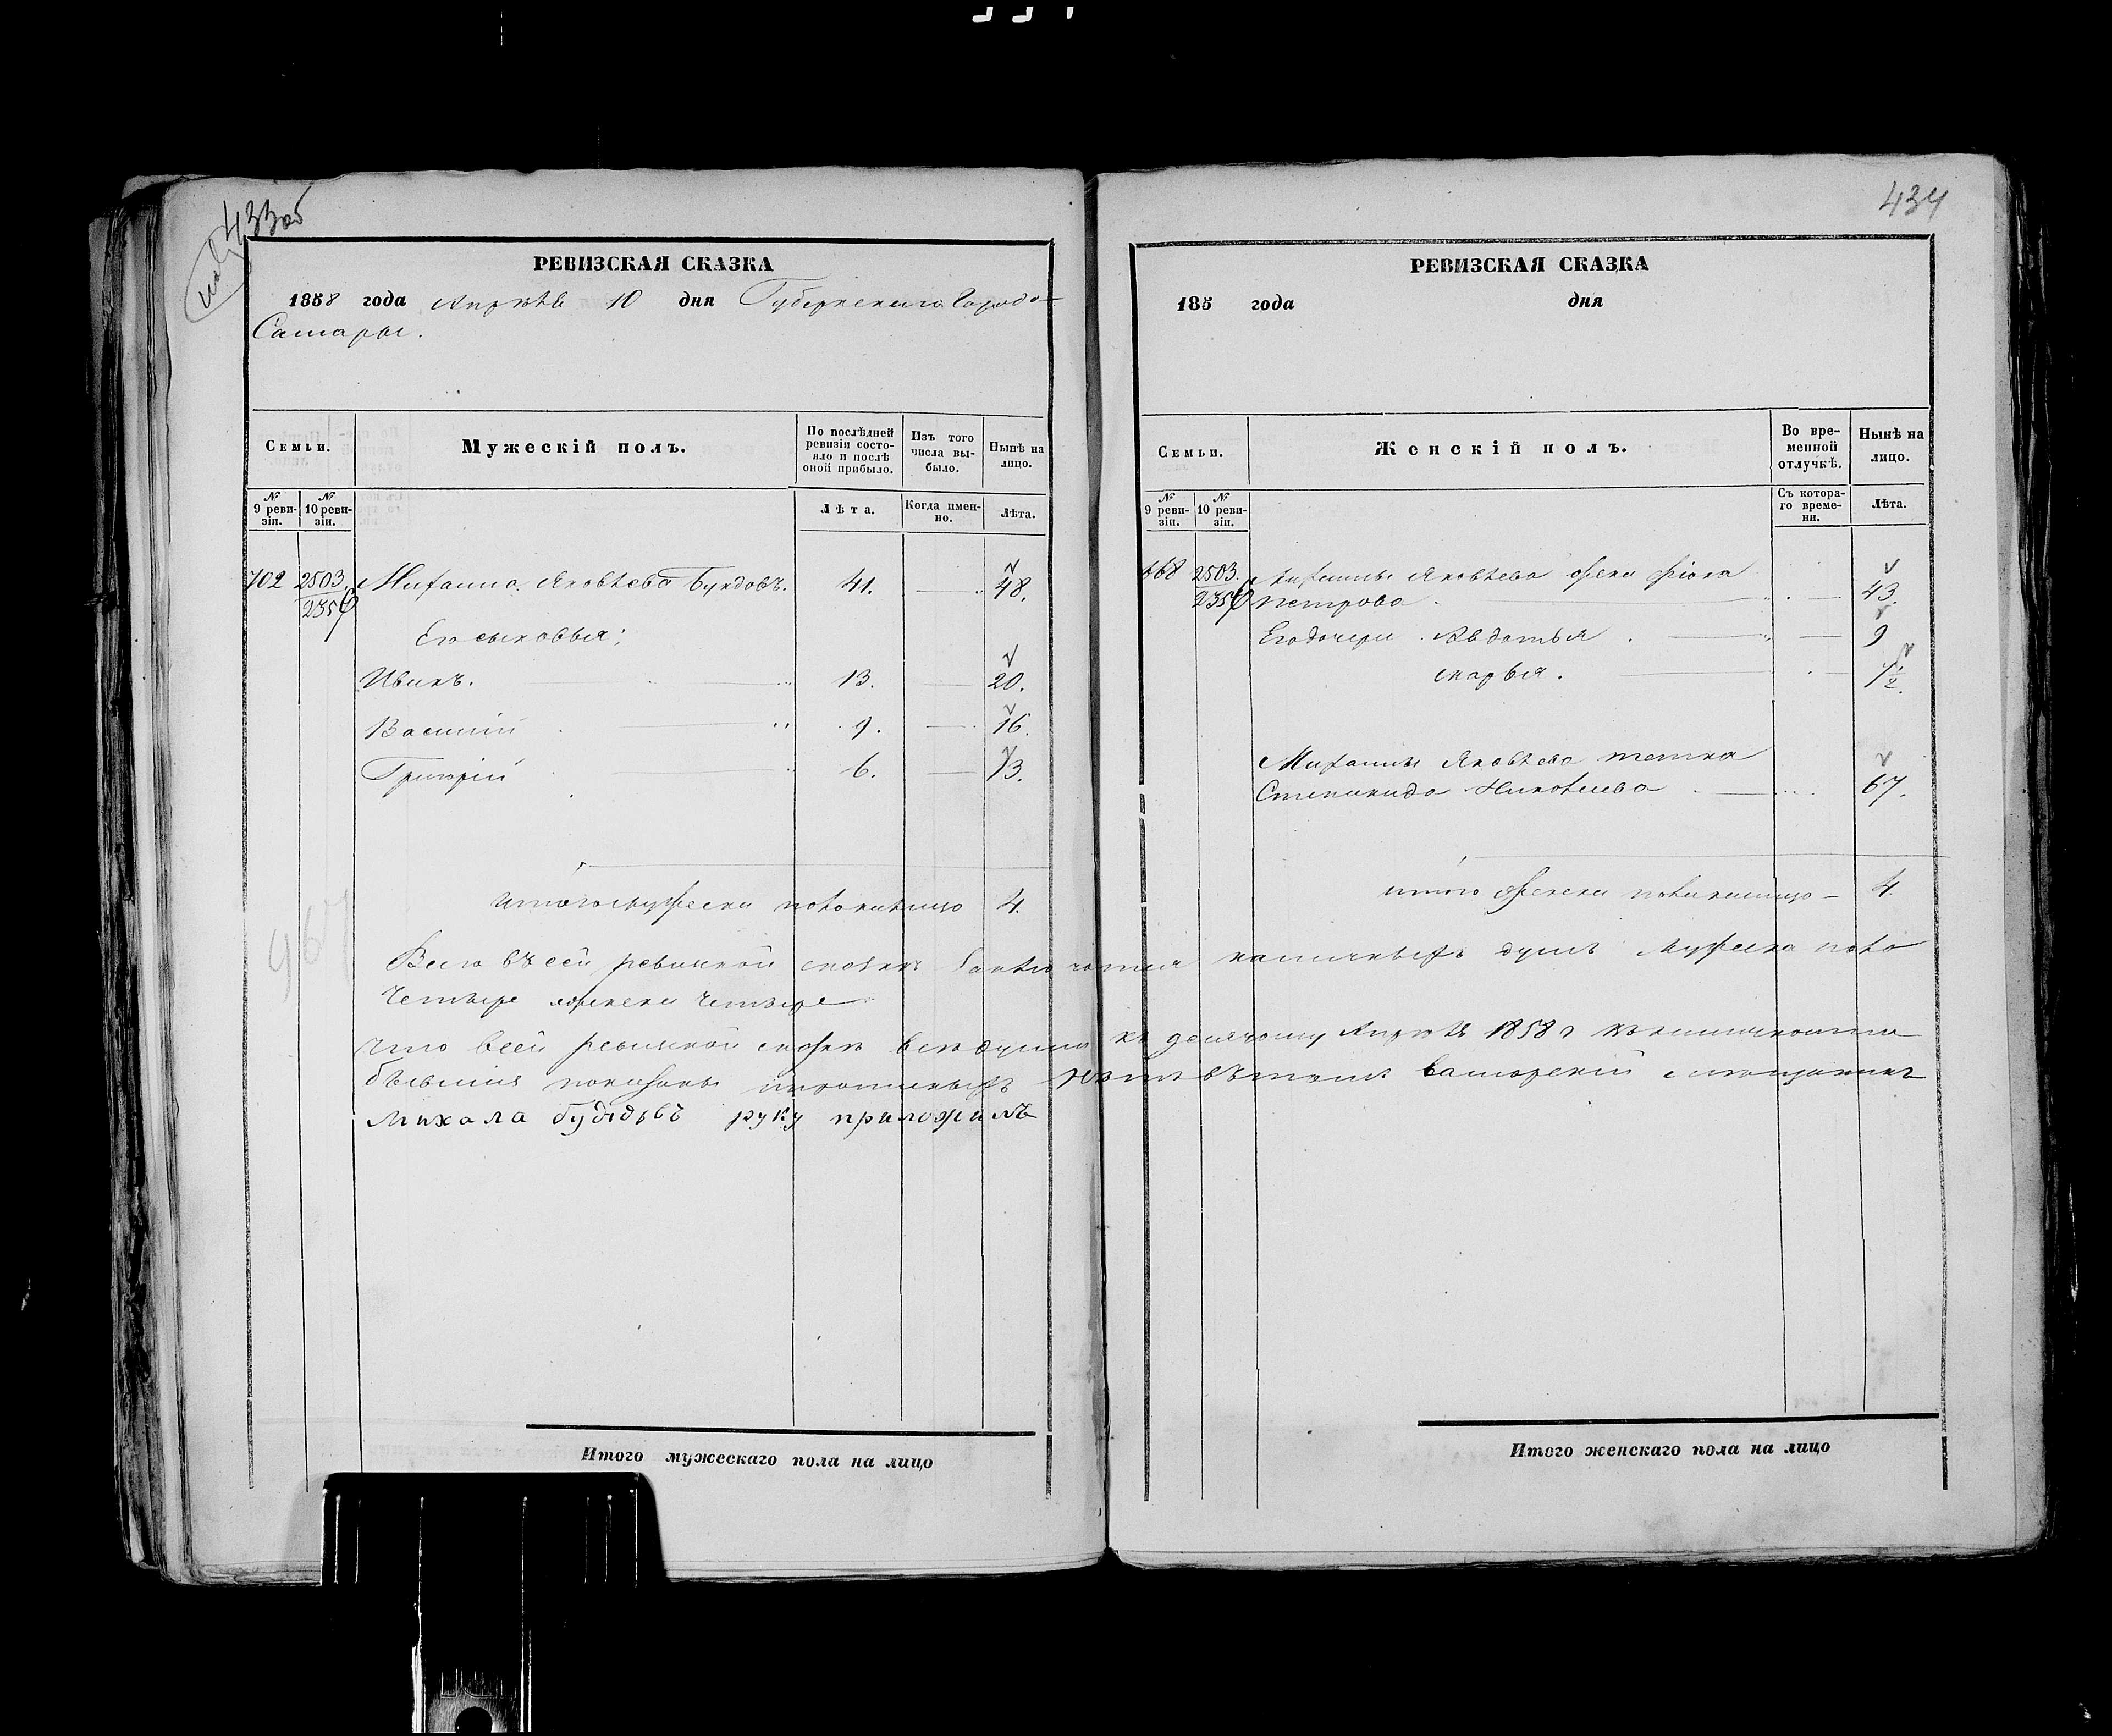 433об
434
РЕВИЗСКАЯ СКАЗКА
1858 года Апрѣля 10 дня Губернскаго Города
Самары.
Семьи.
Мужескій полъ.
По послѣдней ревизіи состояло и послѣ оной прибыло.
Изъ того числа выбыло.
Нынѣ на лицо.
№ 9 ревизіи.
№ 10 ревизіи.
Лѣта.
Когда именно.
Лѣта.
702 2503. Михаила Яковлевъ 41. 48.
235
Его сыновья:
Иванъ. 13. 20.
Василій 9. 16.
Григорій 6. 13.
Итого мужеска пола налицо 4.
967
Всего въ сей ревизской сказкѣ наличныхъ душъ мужеска пола
четыре женска четыре
Что в сей ревизской сказкѣ всѣ души къ десятому Апрѣля 1858 г
бывшія показаны
Михала руку приложилъ
Итого мужескаго пола на лицо
РЕВИЗСКАЯ СКАЗКА
185 года дня
Семьи.
Женскій полъ.
Во временной отлучкѣ.
Нынѣ на лицо.
№ 9 ревизіи.
№ 10 ревизіи.
Съ котораго времени.
Лѣта.
668 2503. Михаилы Яковлева жена Фіона
235 Петрова 43.
Его дочери Авдотья 9
Марья. 1/2.
Михаилы Яковлева тетка
Степанида Николаева 67.
итого женска пола налицо 4.
Итого женскаго пола на лицо